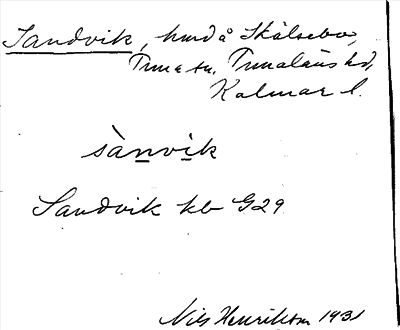 Sandvik, hmd å Skälsebo,
Tuna sn, Tunaläns hd,
Kalmar l.
sànvik
Sandvik kb G29
Nils Henrikson 1931